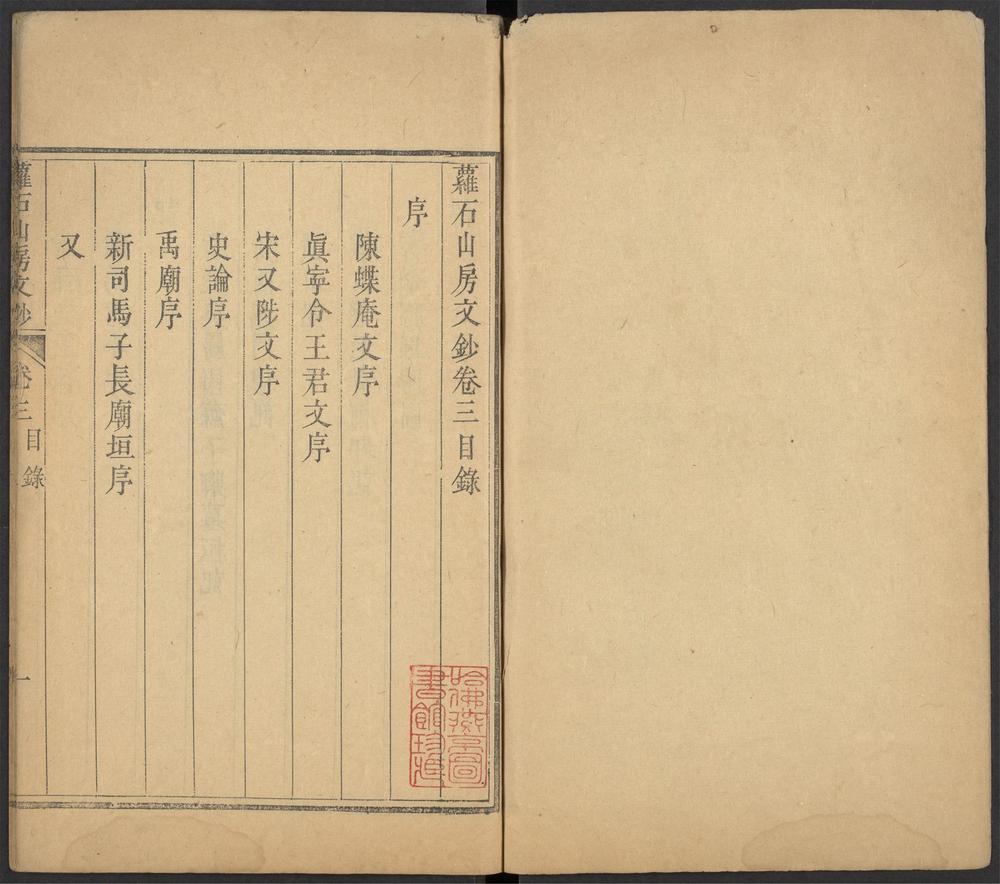 蘿石山房文鈔卷三目錄
序
陳蝶庵文序
眞寧令王君文序
宋又陟文序
史論序
禹廟序
新司馬子長廟垣序
又
蘿石山房文鈔
卷三
目錄
一
哈佛燕京圖
書館珍藏